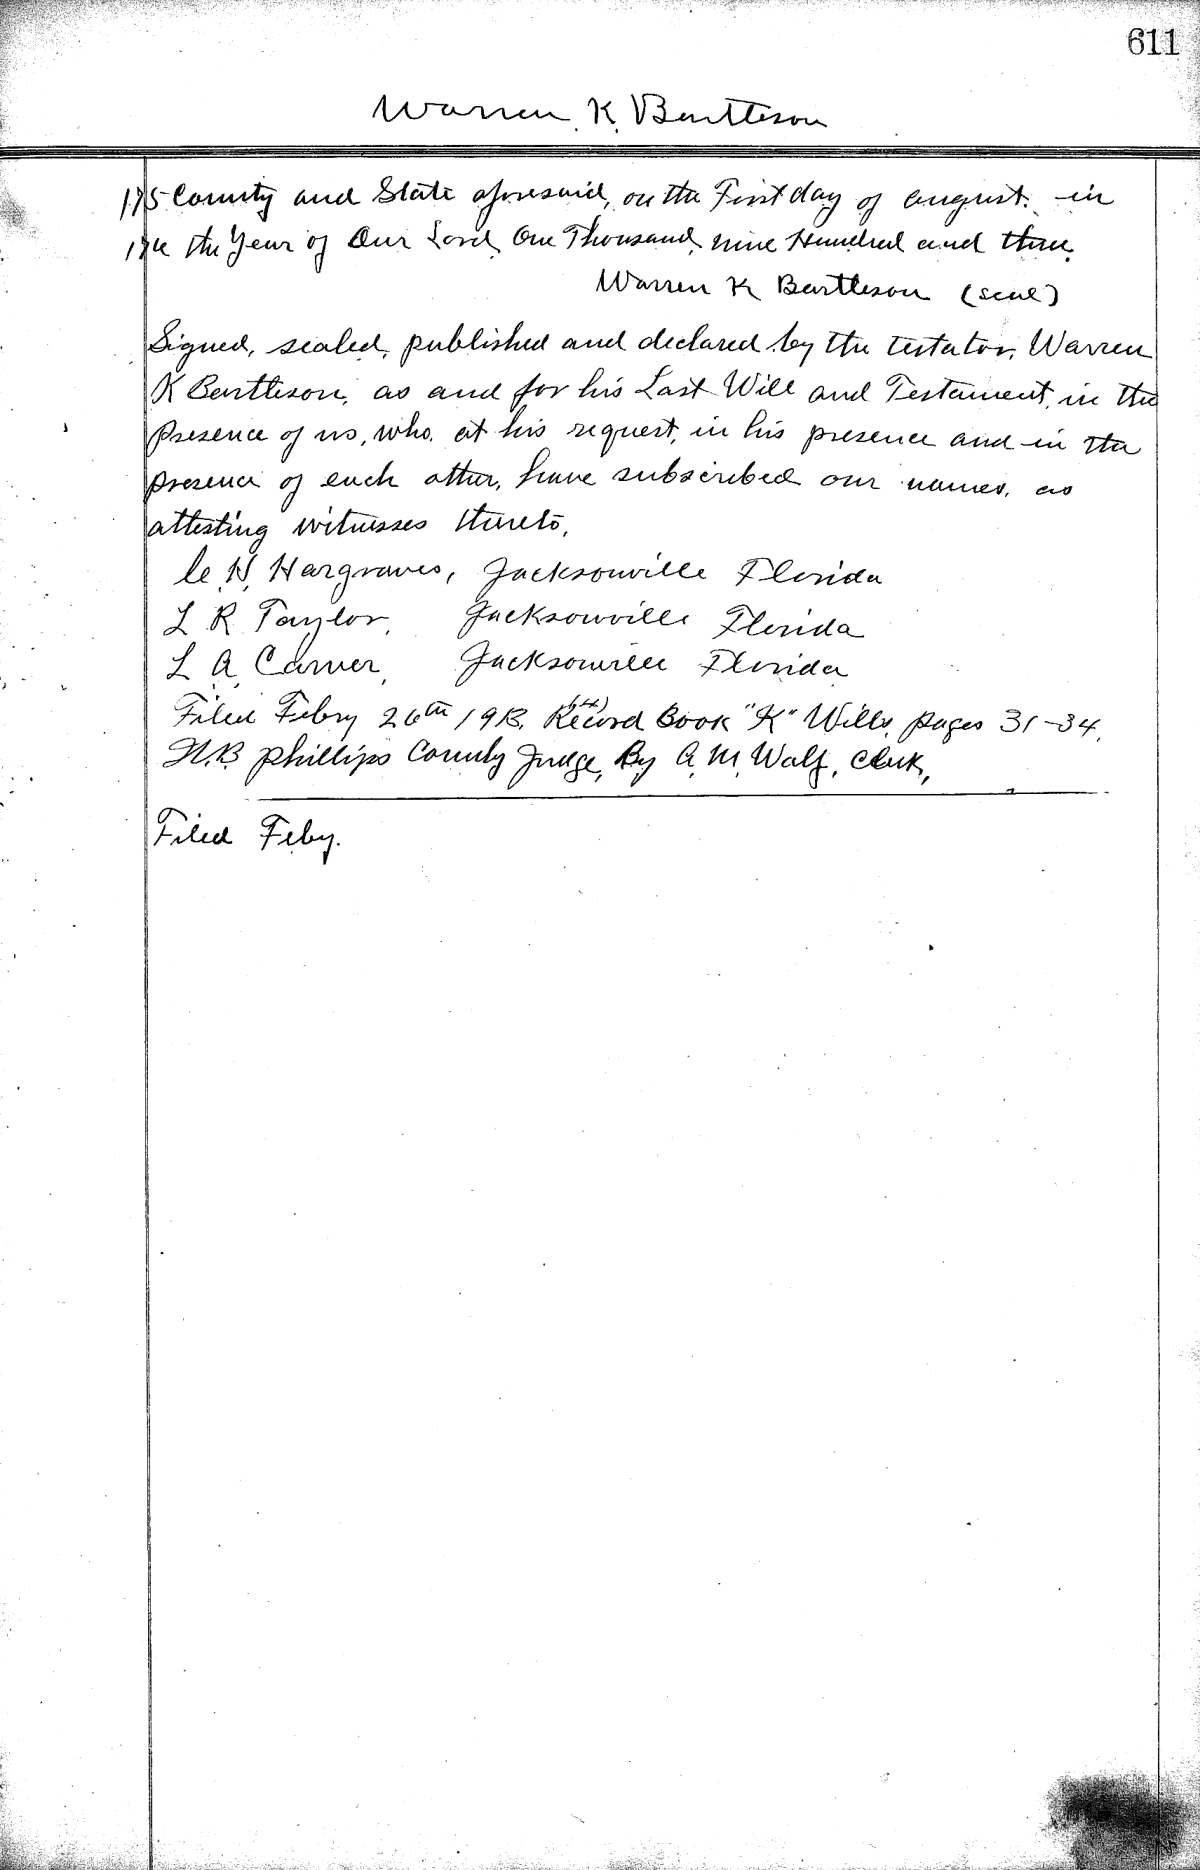 611
Warren K. Bartleson
175 County and State aforesaid, on the First day of August. in
176 the Year of Our Lord, One Thousand, nine Hundred and three.
Warren K Bartleson (seal)
Signed, sealed, published and declared by the testator, Warren
K Bartleson, as and for his Last Will and Testament, in the
Presence of us, who, at his request, in his presence and in the
presence of each other, have subscribed our names, as
attesting witnesses thereto,
C. H. Hargraves, Jacksonville Florida
L R Taylor, Jacksonville Florida
L A Carver, Jacksonville Florida
Filed Febry 26th 1913. Record Book "K" Wills, pages 31-34.
H.B Phillips County Judge, By A. M. Wolf, Clerk,
Filed Feby.